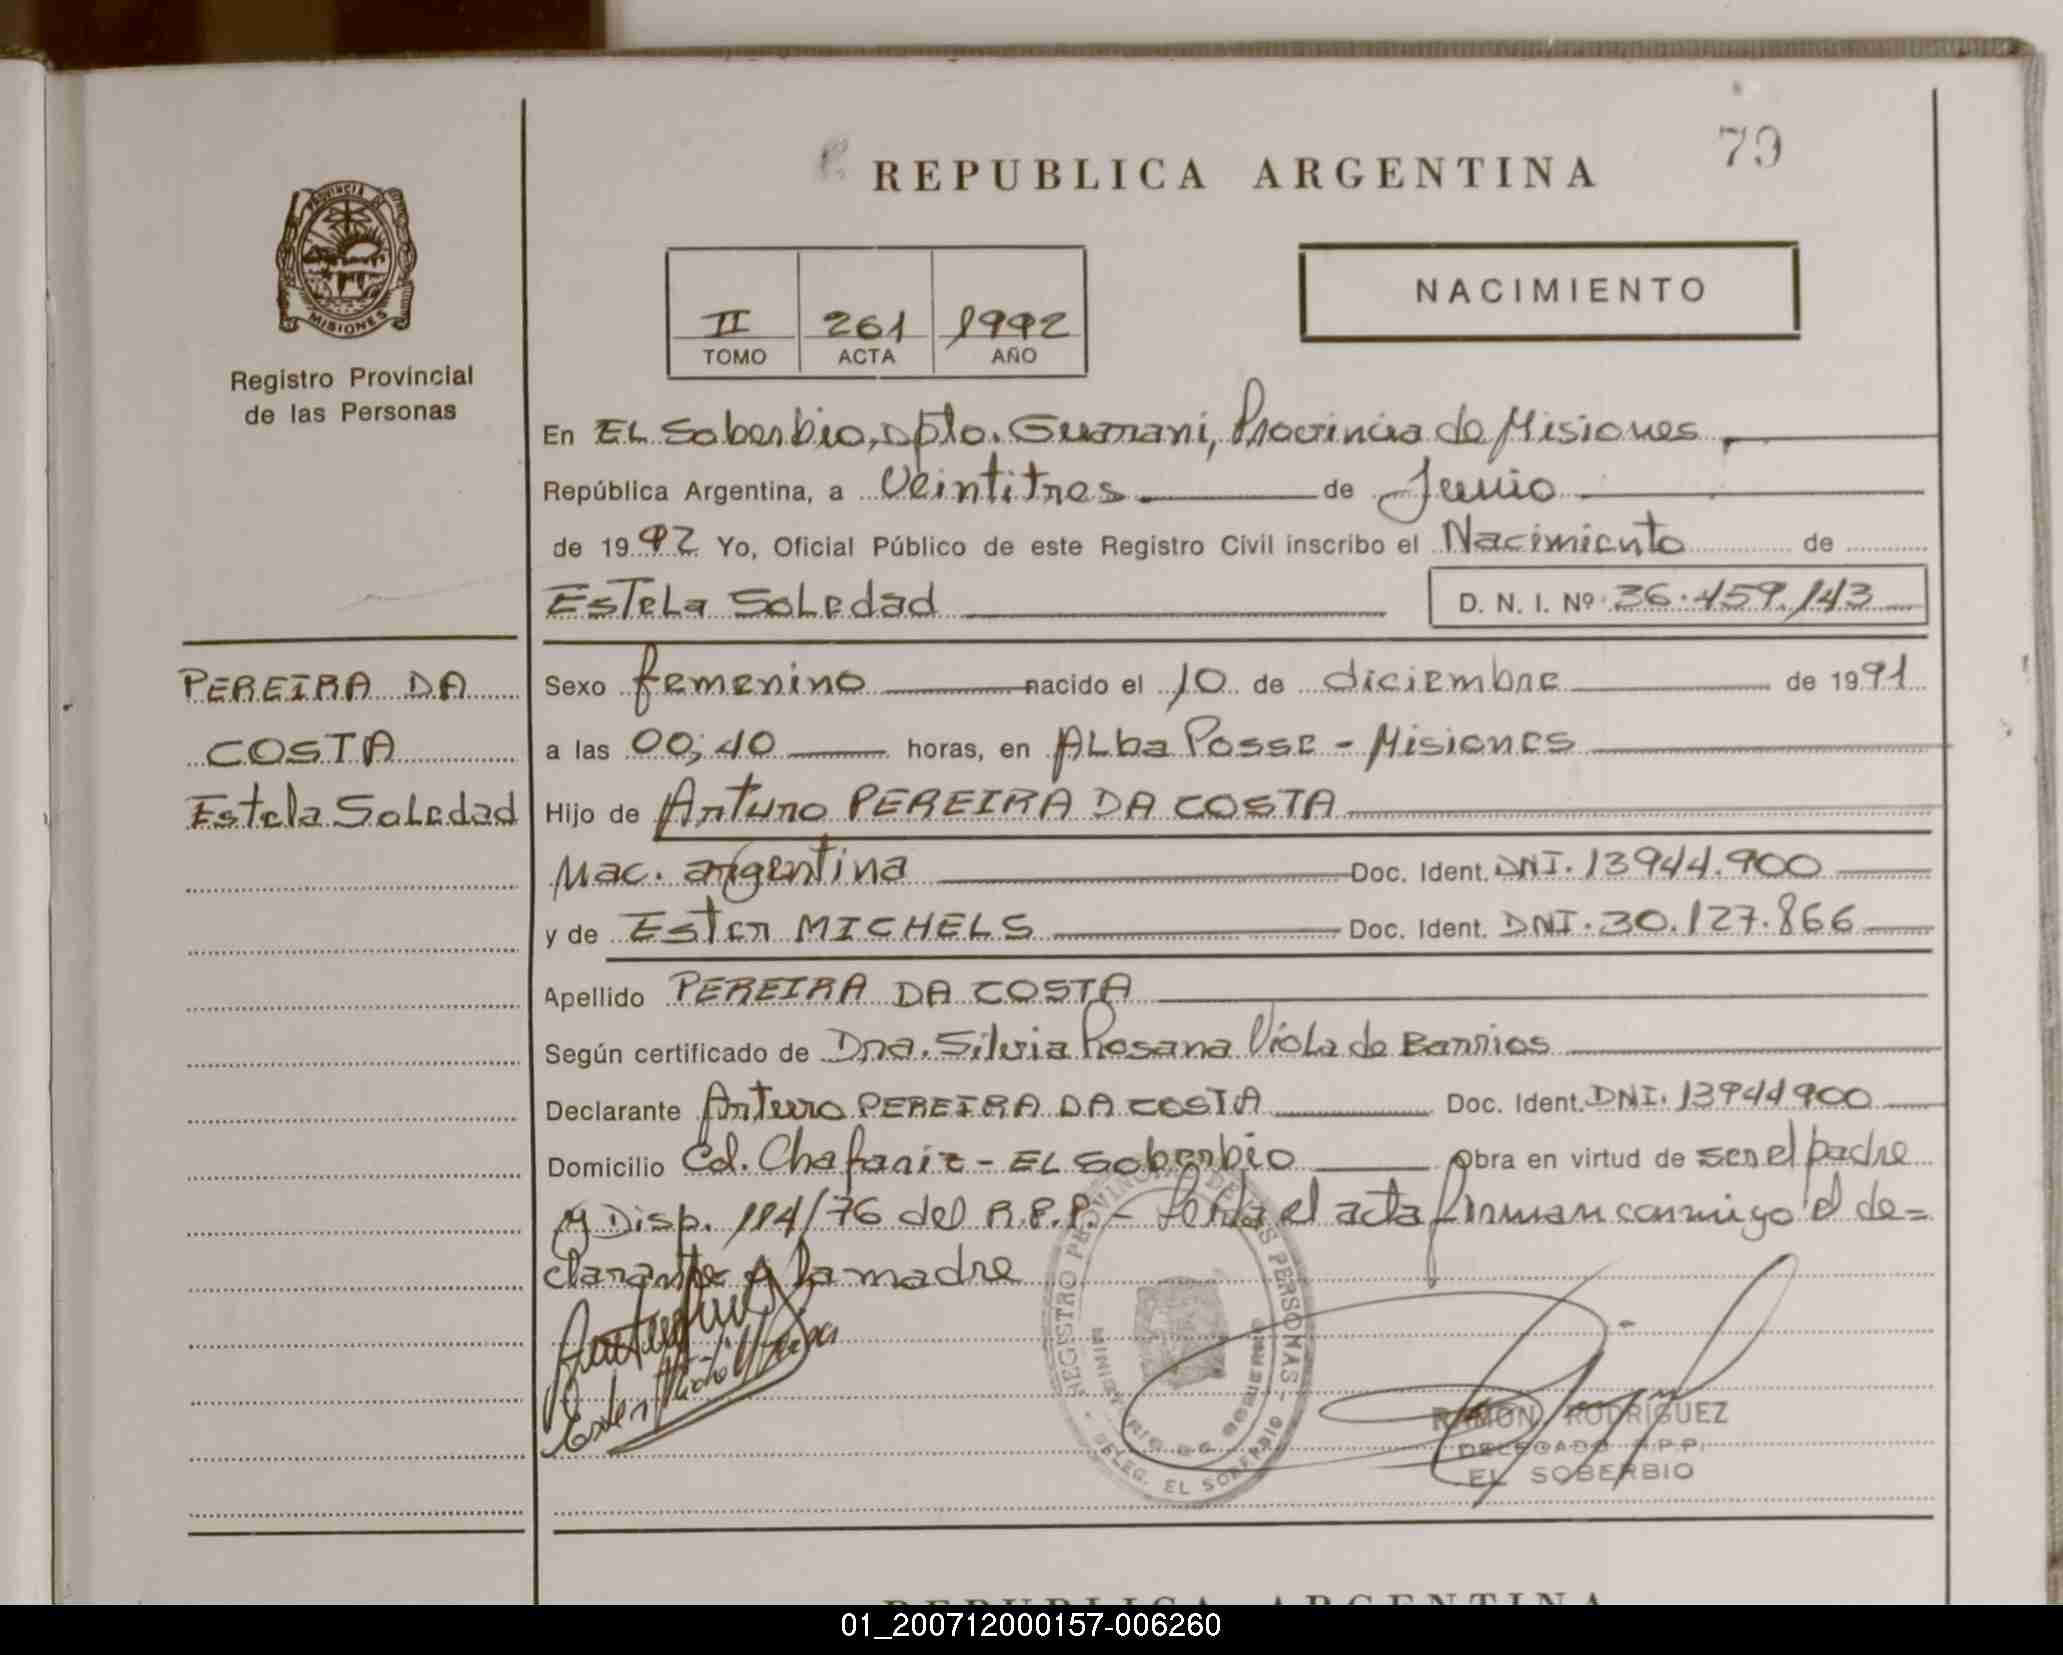 79
REPUBLICA ARGENTINA
PROVINCIA DE
MISIONES
Registro Provincial
de las Personas
NACIMIENTO
II 261 1992
TOMO ACTA AÑO
En EL Soberbio, Dpto. Guarani, Provincia de Misiones,
República Argentina, a Veintitres de Junio
de 1992 Yo, Oficial Público de este Registro Civil inscribo el Nacimiento de
Estela Soledad D. N. I. Nº 36.459.143
PEREIRA DA
COSTA
Estela Soledad
Sexo femenino nacido el 10 de diciembre de 1991
a las 00;40 horas, en Alba Posse - Misiones
Hijo de Arturo PEREIRA DA COSTA
Nac. argentina Doc. Ident. DNI. 13944.900
y de Ester MICHELS Doc. Ident. DNI. 30.127.866
Apellido PEREIRA DA COSTA
Según certificado de Dra. Silvia Rosana Viola de Barrios
Declarante Arturo PEREIRA DA COSTA Doc. Ident. DNI. 13944900
Domicilio Cd. Chafariz - EL Soberbio Obra en virtud de ser el padre
y Disp. 114/76 del R.P.P. - Leida el acta firman conmigo el de=
clarante y la madre
REGISTRO PROVINCIAL DE LAS PERSONAS -
DELEG. EL SOBERBIO
Ester
RAMON RODRIGUEZ
DELEGADO R.P.P.
EL SOBERBIO
REPUBLICA ARGENTINA
01_200712000157-006260